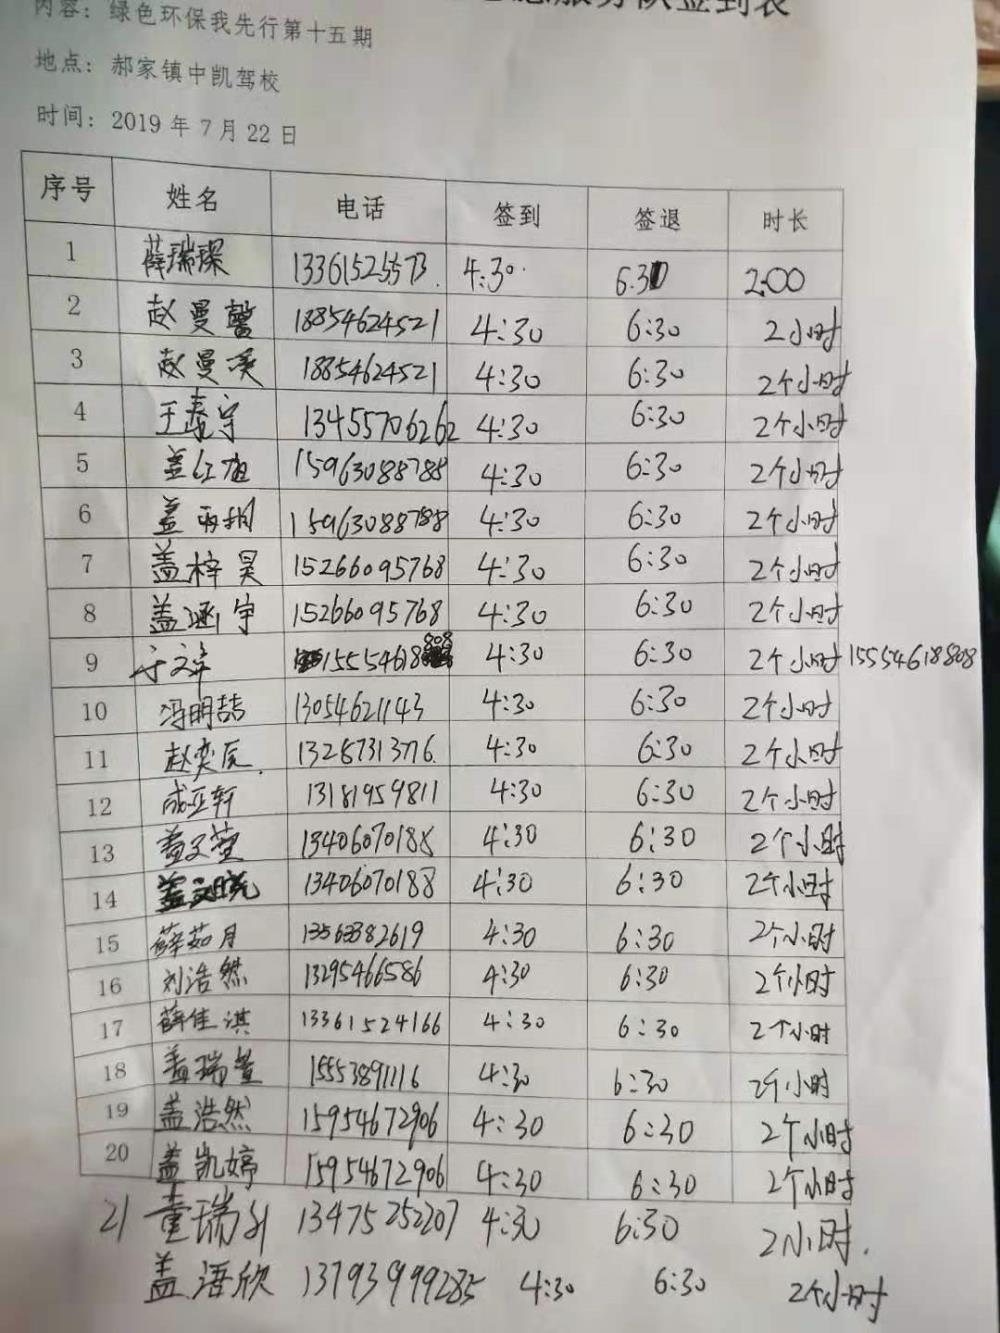 服务队签到表
内容：绿色环保我先行第十五期
地点：郝家镇中凯驾校
时间：2019年7月22日
序号 姓名 电话 签到 签退 时长
1 薛瑞琛 13361525573. 4:30. 6:30 2:00
2 赵曼馨 18854624521 4:30 6:30 2小时
3 赵曼 18854624521 4:30 6:30 2个小时
4 王泰宇 13455706262 4:30 6:30 2个小时
5 盖红旭 15963088788 4:30 6:30 2个小时
6 盖雨桐 15963088788 4:30 6:30 2个小时
7 盖梓昊 15266095768 4:30 6:30 2个小时
8 盖涵宇 15266095768 4:30 6:30 2个小时
9 于文 15554618808 4:30 6:30 2个小时 15554618808
10 冯明喆 13054621143 4:30 6:30 2个小时
11 赵奕辰. 13287313776. 4:30 6:30 2个小时
12 成亚轩 13181959811 4:30 6:30 2个小时
13 盖文萱 13406070188 4:30 6:30 2个小时
14 盖文晓 13406070188 4:30 6:30 2个小时
15 薛茹月 13563382619 4:30 6:30 2个小时
16 刘浩然 13295466586 4:30 6:30 2个小时
17 薛佳淇 13361524166 4:30 6:30 2个小时
18 盖瑞萱 15553891116 4:30 6:30 2个小时
19 盖浩然 15954672906 4:30 6:30 2个小时
20 盖凯婷 15954672906 4:30 6:30 2个小时
21 董瑞 13475252207 4:30 6:30 2小时.
盖语欣 13793999285 4:30 6:30 2个小时